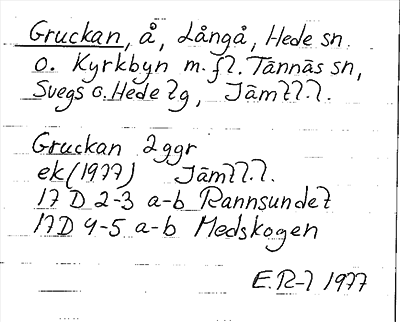 Gruckan, å, Långå, Hede sn.
o. Kyrkbyn m.fl. Tännäs sn,
Svegs o. Hede lg, Jämtl.l.
Gruckan 2ggr
ek(1977) Jämtl.l.
17 D 2-3 a-b Rannsundet
17D 4-5 a-b Medskogen
E.R-l 1977